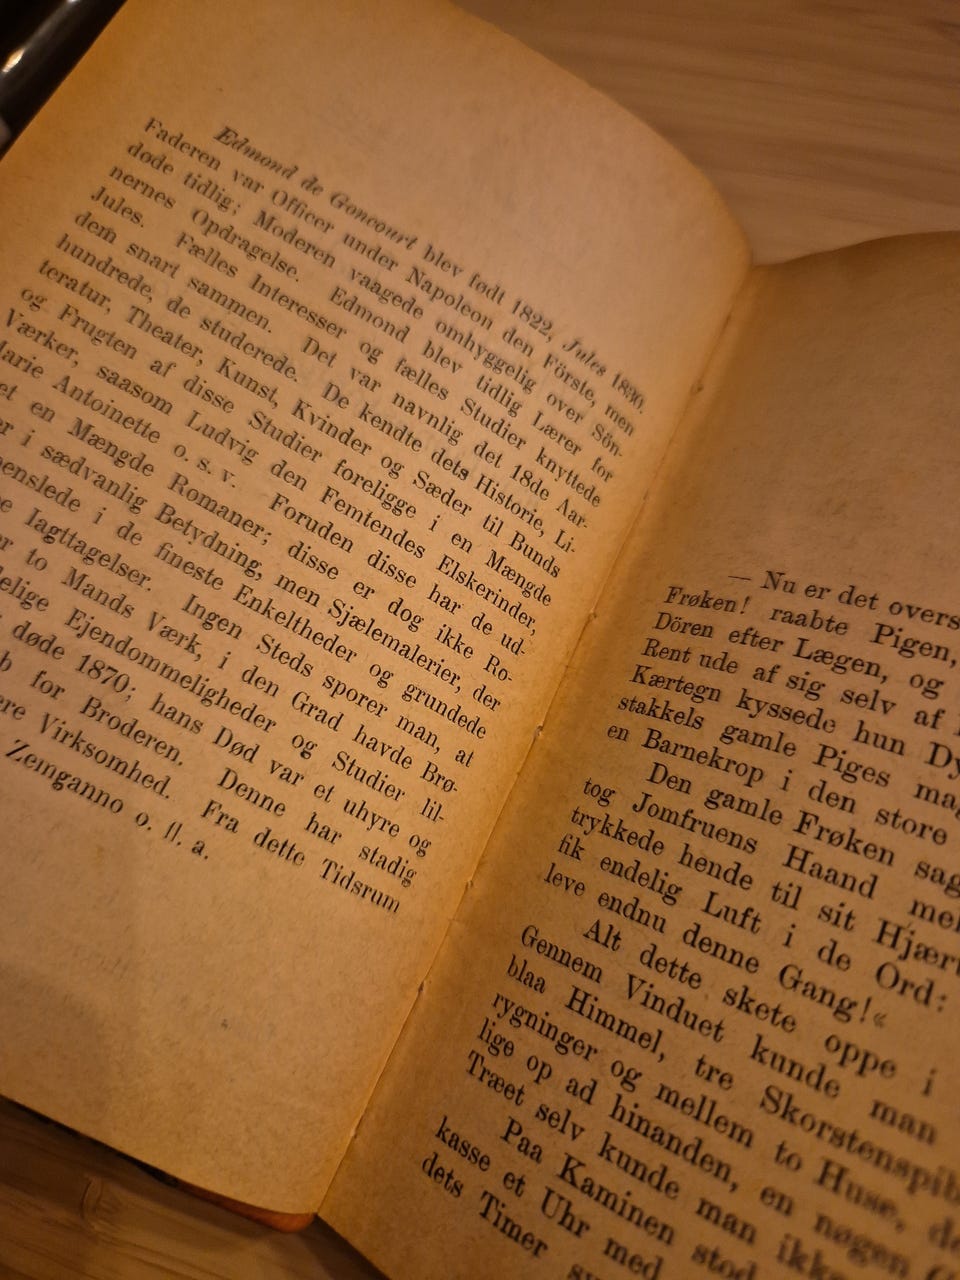 Edmond de Goncourt blev født 1822, Jules 1830.
Faderen var Officer under Napoleon den Förste, men
døde tidlig; Moderen vaagede omhyggelig over Sön-
nernes Opdragelse. Edmond blev tidlig Lærer for
Jules. Fælles Interesser og fælles Studier knyttede
dem snart sammen. Det var navnlig det 18de Aar-
hundrede, de studerede. De kendte dets Historie, Li-
teratur, Theater, Kunst, Kvinder og Sæder til Bunds
og Frugten af disse Studier foreligge i en Mængde
Værker, saasom Ludvig den Femtendes Elskerinder,
Marie Antoinette o. s. v. Foruden disse har de ud-
en Mængde Romaner; disse er dog ikke Ro-
i sædvanlig Betydning, men Sjælemalerier, der
i de fineste Enkeltheder og grundede
Iagttagelser. Ingen Steds sporer man, at
to Mands Værk, i den Grad havde Brø-
Ejendommeligheder og Studier lil-
døde 1870; hans Død var et uhyre og
for Broderen. Denne har stadig
Virksomhed. Fra dette Tidsrum
Zeinganno o. fl. a.
— Nu er det overs
Frøken! raabte Pigen,
Dören efter Lægen, og
Rent ude af sig selv af
Kærtegn kyssede hun Dy
stakkels gamle Piges mag
en Barnekrop i den store
Den gamle Frøken sag
tog Jomfruens Haand mel
trykkede hende til sit Hjært
fik endelig Luft i de Ord:
leve endnu denne Gang!«
Alt dette skete oppe i
Gennem Vinduet kunde man
blaa Himmel, tre Skorstenspib
rygninger og mellem to Huse, de
lige op ad hinanden, en nøgen
Træet selv kunde man ikke
Paa Kaminen stod
kasse et Uhr med
dets Timer